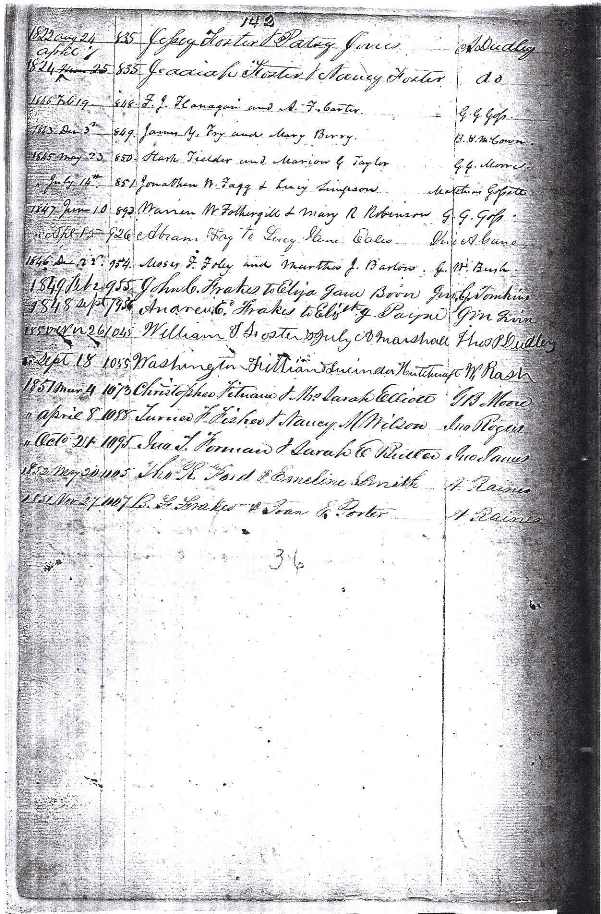 142
1822 aug 24 835 Jessey Foster & Patsy Jones A Dudley
april 1
1824 835 Jeadiah Foster & Nancy Foster do
1845 Feb 19 848 F. J. Flanagan and A. F. Carter G G Goss
1845 Dec 3rd 849 James Y. Fry and Mary Berry B. H. McCown
1845 May 23 850 Hark Fielder and Marion G Taylor G G. Moore
" July 14th 851 Jonathan W. Fagg & Lucy Simpson
1847 June 10 893 Warren W Fothergill & Mary R Robinson G. G. Goss
Sept 926 Abram Fry to Lucy Jane Eales
1846 Dec 22d 954 Moses F. Foley and Marthea J. Barlow G. W. Bush
1849 955 John C. Frakes to Eliza Jane Boon Tomkins
1848 Sept 956 Andrew C. Frakes to Elizth J Payne
1850 26 1045 William S Foster & July A Marshall Thos P Dudley
" Sept 18 1055 Washington Fillian & Lurinder Hutchcraft W Rash
1851 Mar 4 1073 Christopher & Mrs Sarah Elliott G B Moore
" april 8 1088 Turner F. Fisher & Nancy M Wilson Jno Rogers
" Octo 21 1095 Jno T. Forman & Sarah E Butler Jno James
1852 May 20 1105 Tho R Ford & Emeline Smith A Raines
1851 Nov 27 1107 B. F. Frakes & Joan E. Porter A Raines
36